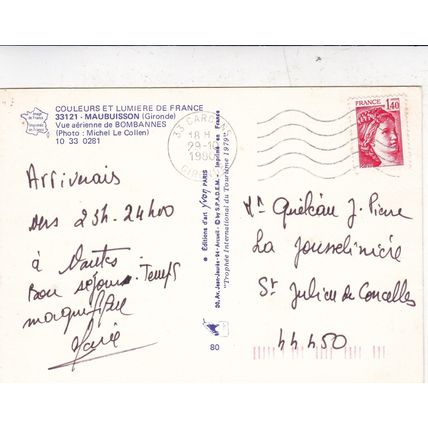 COULEURS ET LUMIERE DE FRANCE
33121 - MAUBUISSON (Gironde)
Vue aérienne de BOMBANNES
(Photo : Michel Le Collen)
10 33 0281
Arriverais
vers 23h-24h00
à Nantes
Bon séjour. Temps
magnifique
Marie
Editions d'art Yvon PARIS
30, Av. Jean-Jaurès-94-Arcueil - © by S.P.A.D.E.M. - Imprimé en France
"Trophée International du Tourisme 1979"
80
18 H
29-
1980
FRANCE
1,40
Mr Quéléau J. Pierre
La Jousselinière
St Julien de Concelles
44450